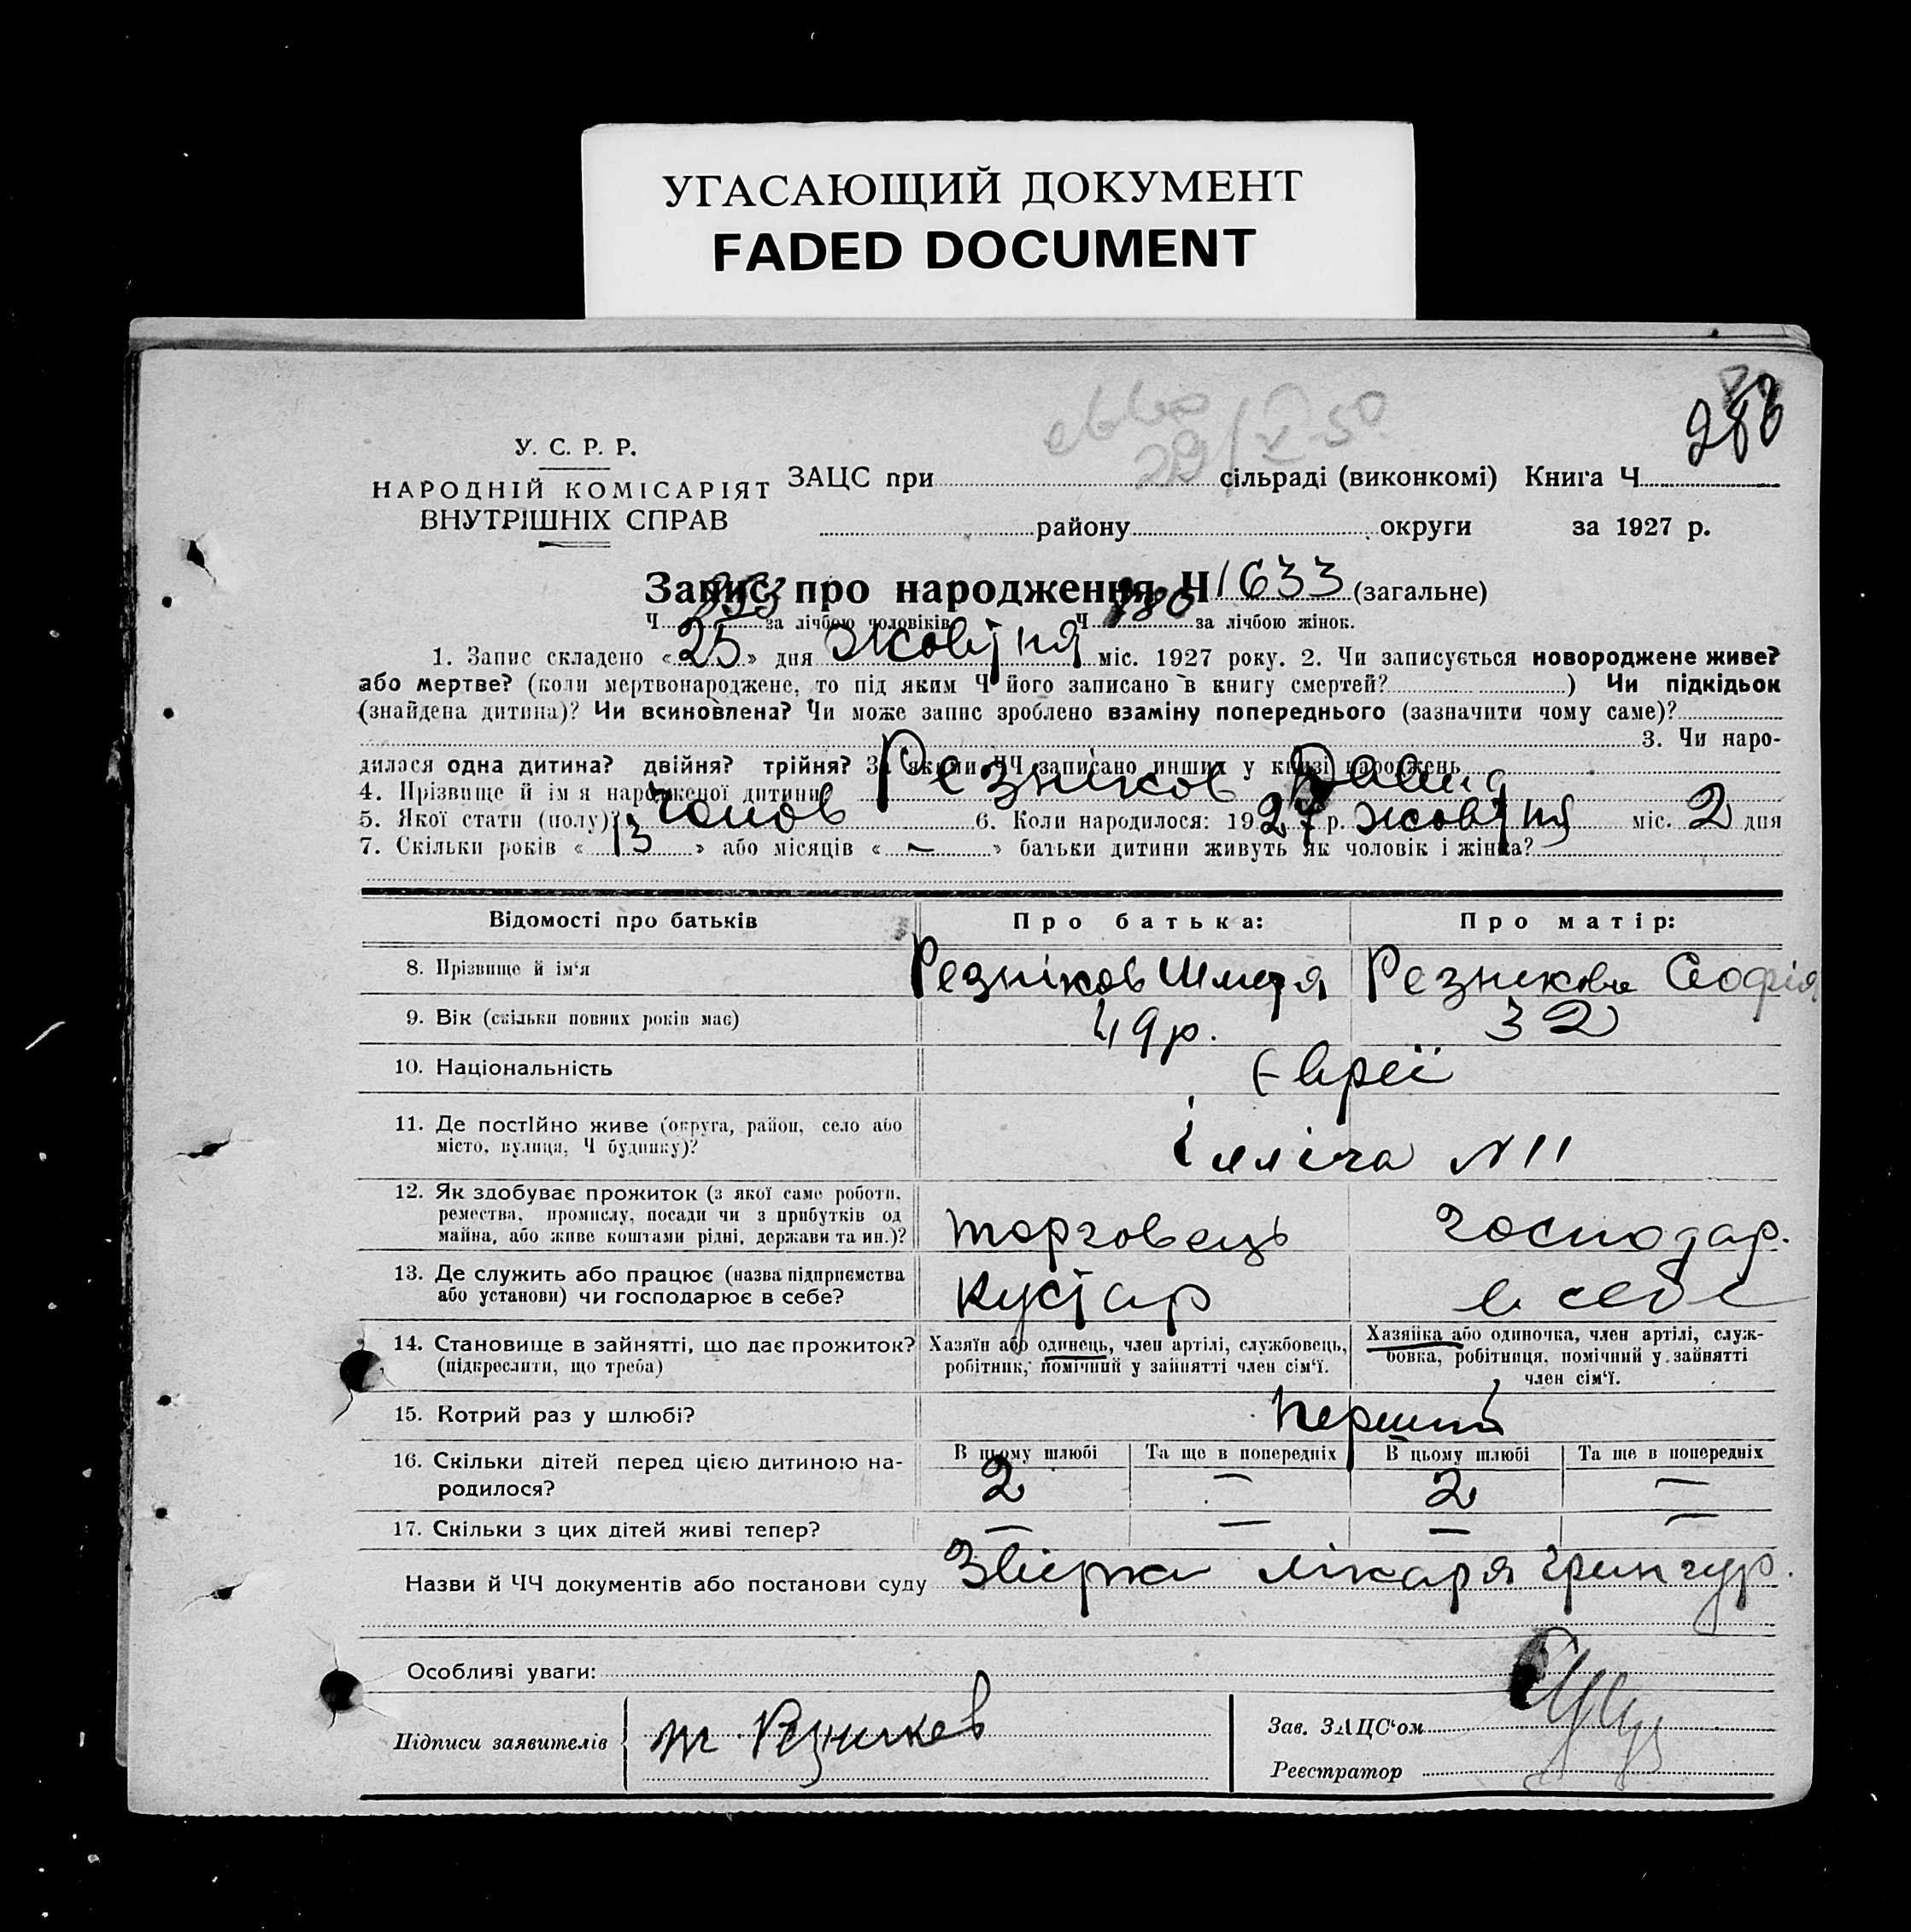 УГАСАЮЩИЙ ДОКУМЕНТ
FADED DOCUMENT
29/V 50
286
У. С. Р. Р.
НАРОДНІЙ КОМІСАРІЯТ
ВНУТРІШНІХ СПРАВ
ЗАЦС при сільраді (виконкомі) Книга Ч.
району округи за 1927 р.
Запис про народження Ч 1633 (загальне)
Ч. 853 за лічбою чоловіків Ч. 780 за лічбою жінок.
1. Запис складено « 25 » дня Жовтня міс. 1927 року. 2. Чи записується новороджене живе?
або мертве? (коли мертвонароджене, то під яким Ч його записано в книгу смертей? ) Чи підкідьок
(знайдена дитина)? Чи всиновлена? Чи може запис зроблено взаміну попереднього (зазначити чому саме)?
3. Чи наро-
дилася одна дитина? двійня? трійня? За якими ЧЧ записано инших у книзі народжень
4. Прізвище й ім я народженої дитини Резніков Давид
5. Якої стати (полу)? Чолов 6. Коли народилося: 1927 р. жовтня міс. 2 дня
7. Скільки років « 13 » або місяців « – » батьки дитини живуть як чоловік і жінка?
Відомості про батьків Про батька: Про матір:
8. Прізвище й ім'я Резніков Шмеря Резникова Софія
9. Вік (скільки повних років має) 49 р. 32
10. Національність Євреї
11. Де постійно живе (округа, район, село або
місто, вулиця, Ч будинку)? Ілліча N 11
12. Як здобуває прожиток (з якої саме роботи,
ремества, промислу, посади чи з прибутків од
майна, або живе коштами рідні, держави та ин.)? торговець господар.
13. Де служить або працює (назва підприємства
або установи) чи господарює в себе? Кустар в себе
14. Становище в зайнятті, що дає прожиток? Хазяїн або одинець, член артілі, службовець, Хазяйка або одиночка, член артілі, служ-
(підкреслити, що треба) робітник, помічний у зайнятті член сім'ї. бовка, робітниця, помічний у зайнятті
член сім'ї.
15. Котрий раз у шлюбі? перший
16. Скільки дітей перед цією дитиною на- В цьому шлюбі Та ще в попередніх В цьому шлюбі Та ще в попередніх
родилося? 2 – 2 –
17. Скільки з цих дітей живі тепер? – – – –
Назви й ЧЧ документів або постанови суду лікаря
Особливі уваги:
Підписи заявителів Резніков
Зав. ЗАЦС'ом
Реєстратор